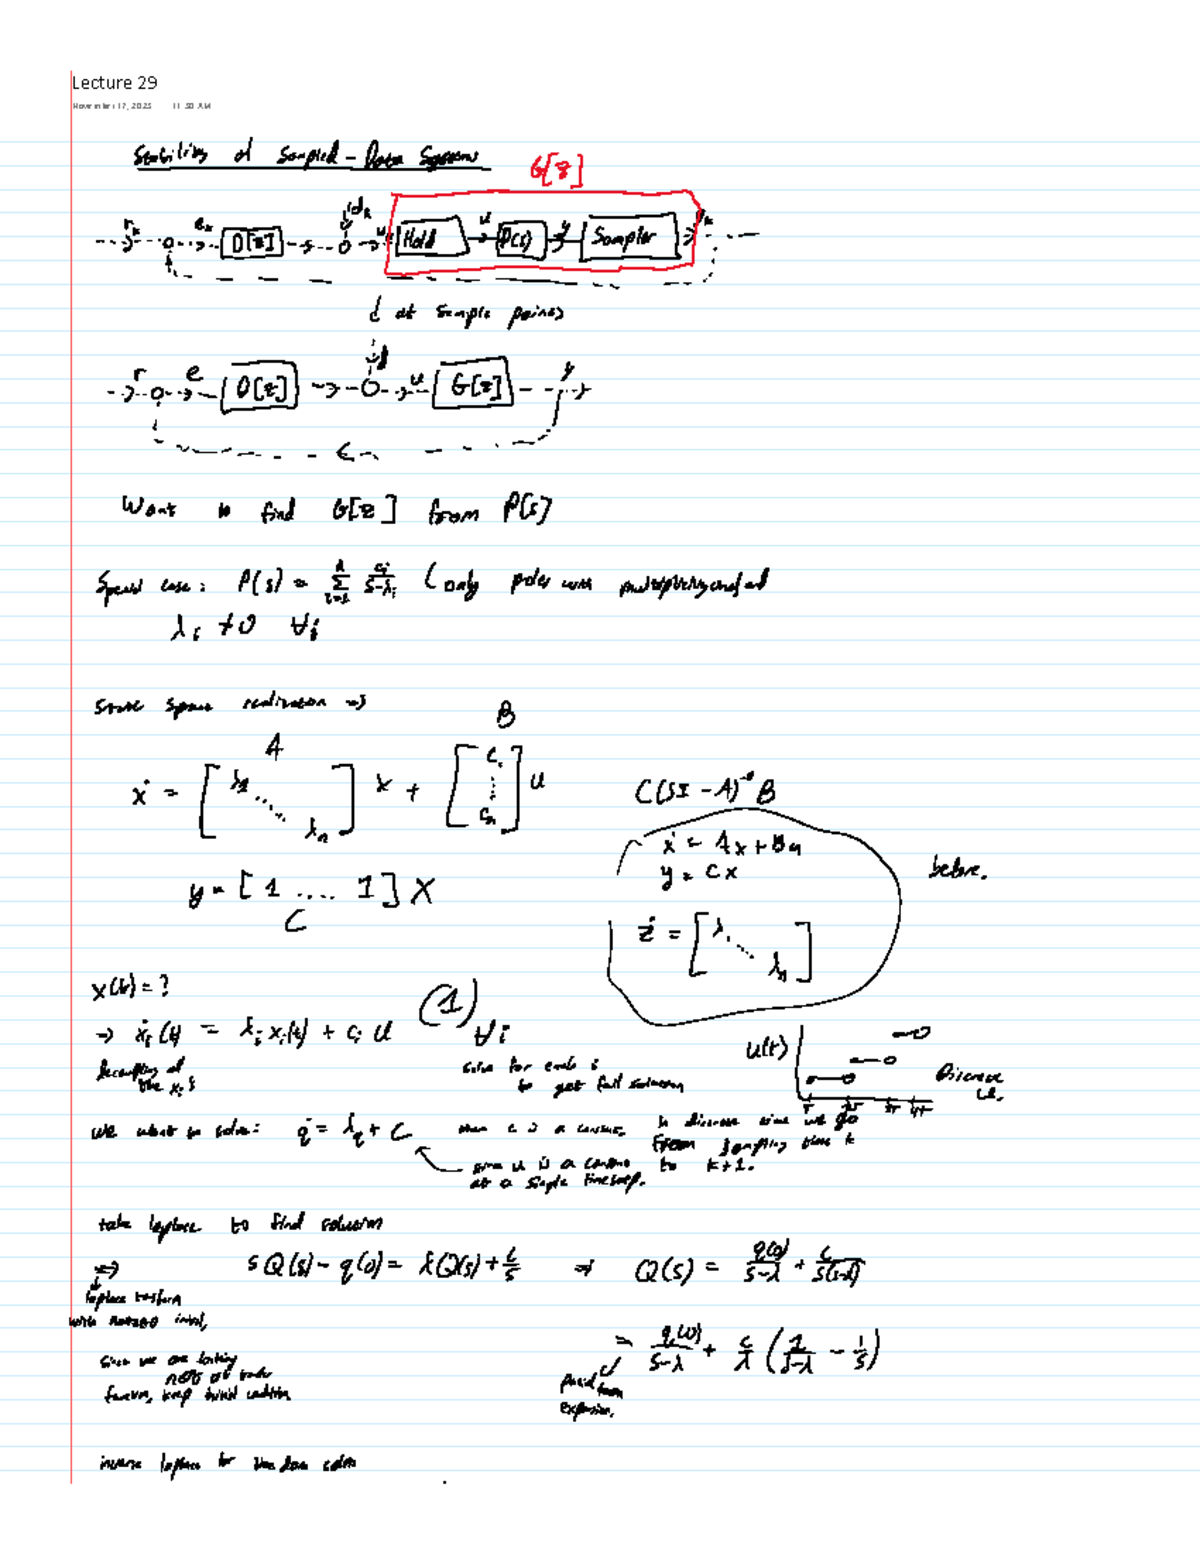 Lecture 29
November 17, 2023 11:30 AM
Stability of Sampled-Data Systems
G[z]
r_k e_k D[z] d_k u Hold u P(s) y Sampler y_k
↓ at sample points
r e D[z] d u G[z] y
Want to find G[z] from P(s)
Special case: P(s) = Σ_{i=1}^{n} c_i/(s-λ_i) (only poles with multiplicity one
λ_i ≠ 0 ∀i
state space realization ⇒
A B
ẋ = [λ_1 ⋱ λ_n] x + [c_1 ⋮ c_n] u
C(sI - A)^{-1} B
ẋ = Ax + Bu
y = Cx
before.
y = [1 .... 1] X
C
ż = [λ_1 ⋱ λ_n]
x(t) = ?
(1)
→ ẋ_i(t) = λ_i x_i(t) + c_i u ∀i
Decoupling of
the x_i's
solve for each i
to get full solution
u(t)
T 2T 3T 4T
Discrete
we want to solve: q̇ = λq + c
when c is a constant.
In discrete time we go
from sampling time k
to k+1.
since u is a constant
at a single timestep.
take laplace to find solution
⇒ sQ(s) - q(0) = λQ(s) + c/s ⇒ Q(s) = q(0)/(s-λ) + c/(s(s-λ))
laplace transform
with nonzero initial,
= q(0)/(s-λ) + c/λ (1/(s-λ) - 1/s)
since we are looking
not at transfer
function, keep initial condition
partial fraction
expansion.
inverse laplace for time dom soln